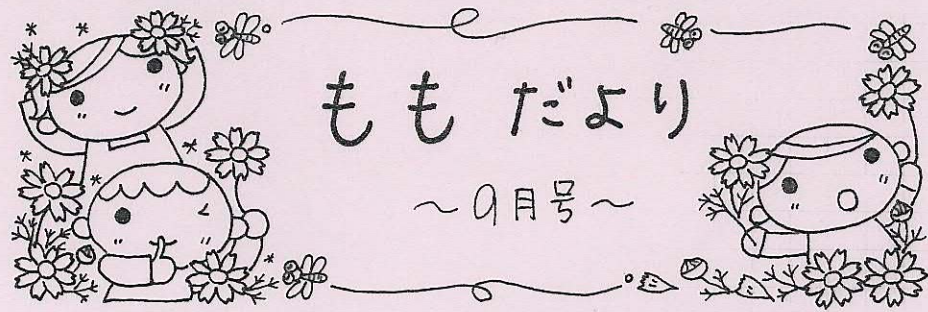 もも だより
～9月号～